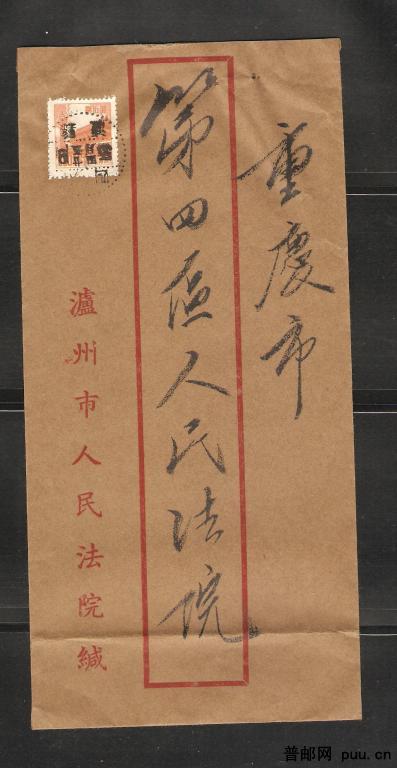 重慶市
第四區人民法院
瀘州市人民法院緘
普邮网 puu.cn